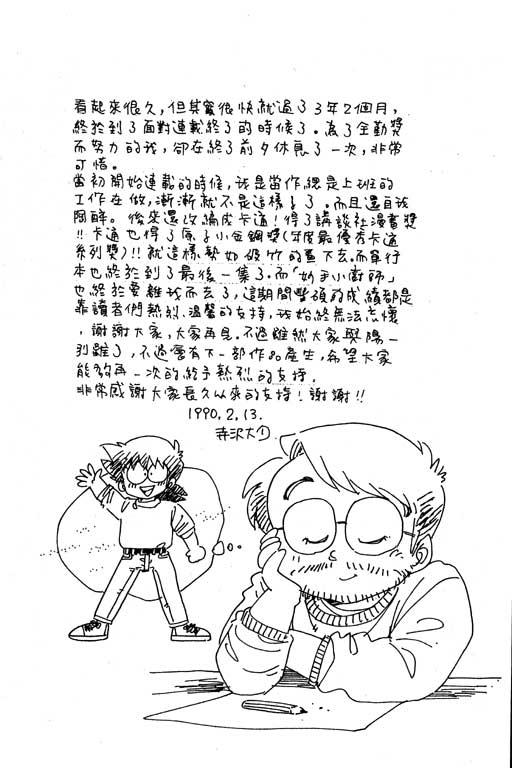 看起來很久，但其實很快就過了3年2個月，
終於到了面對連載終了的時候了。為了全勤獎
而努力的我，卻在終了前夕休息了一次，非常
可惜。
當初開始連載的時候，我是當作總是上班的
工作在做，漸漸就不是這樣了。而且還自我
陶醉。後來還改編成卡通！得了講談社漫畫獎
!!卡通也得了原子小金鋼獎(年度最優秀卡通
系列獎)!!就這樣勢如破竹的畫下去。而單行
本也終於到了最後一集了。而「妙手小廚師」
也終於要離我而去了，這期間豐碩的成績都是
靠讀者們熱烈、溫馨的支持，我始終無法忘懷
，謝謝大家，大家再見。不過雖然大家與陽一
別離了，不過會有下一部作品產生，希望大家
能夠再一次的給予熱烈的支持。
非常感謝大家長久以來的支持！謝謝!!
1990.2.13.
寺沢大介